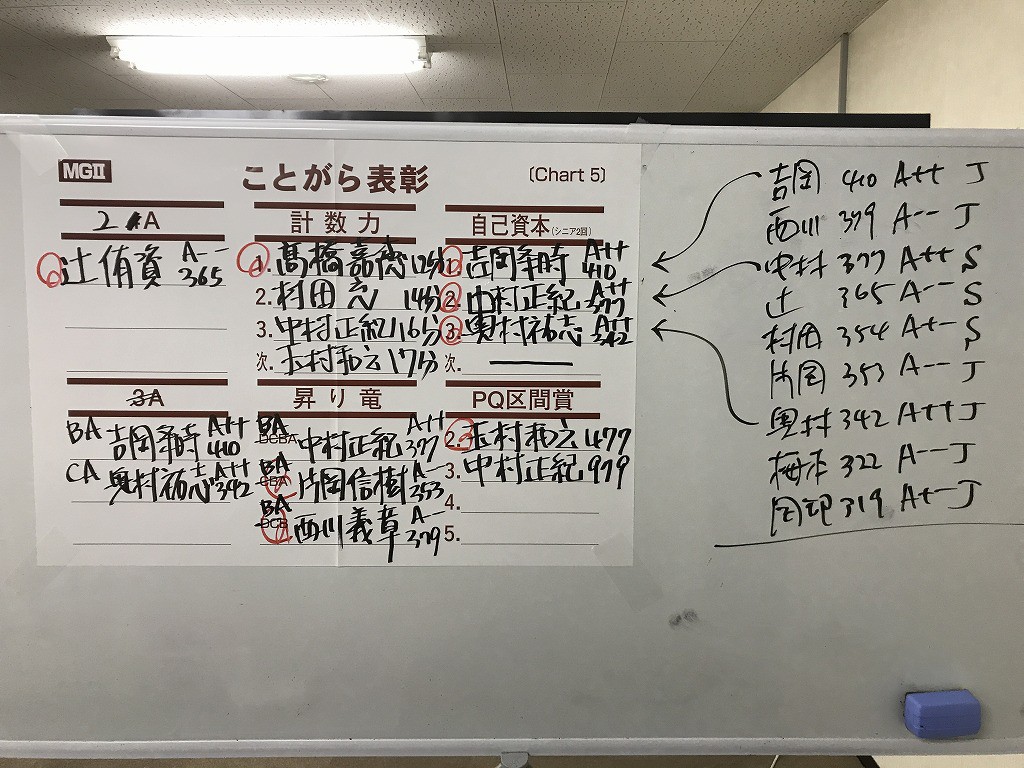 MGⅡ
ことがら表彰
(Chart 5)
2 A
辻 侑資 A-- 365
計数力
1. 髙橋嘉 12分
2. 村田 14分
3. 中村正紀 16分
次. 玉村 17分
自己資本(シニア2回)
1. 吉岡 A++ 410
2. 中村正紀 A++ 377
3. 奥村祐志 A++ 342
次. ―
3A
BA 吉岡 A++ 410
CA 奥村祐志 A++ 342
昇り竜
BA DCBA 中村正紀 A++ 377
BA CBA 片岡信樹 A-- 353
BA DCB 西川義章 A-- 379
PQ区間賞
2. 玉村 1477
3. 中村正紀 979
4.
5.
吉岡 410 A++ J
西川 379 A-- J
中村 377 A++ S
辻 365 A-- S
村田 354 A+- S
片岡 353 A-- J
奥村 342 A++ J
梅本 322 A-- J
319 A+- J